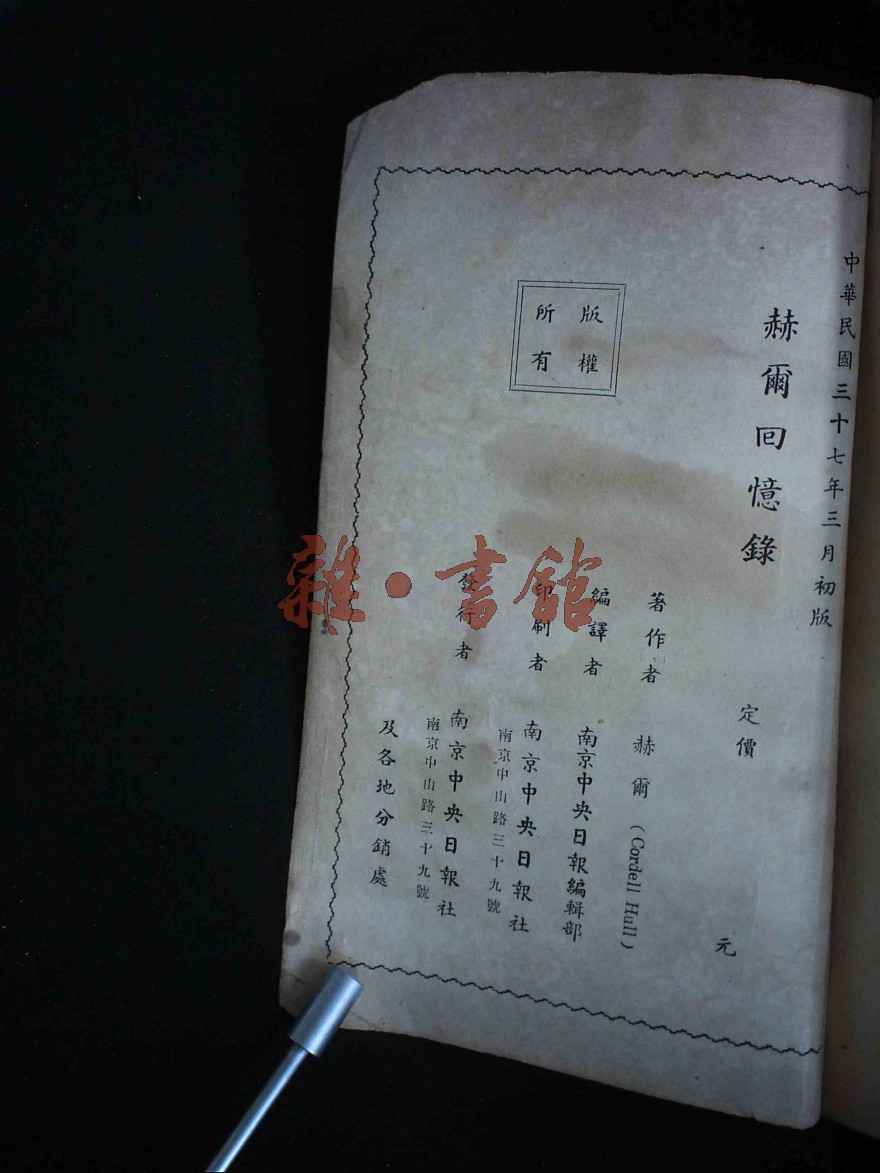 中華民國三十七年三月初版
赫爾回憶錄
定價 元
著作者 赫爾 (Cordell Hull)
編譯者 南京中央日報編輯部
印刷者 南京中央日報社
南京中山路三十九號
發行者 南京中央日報社
南京中山路三十九號
及各地分銷處
版權
所有
雜·書館